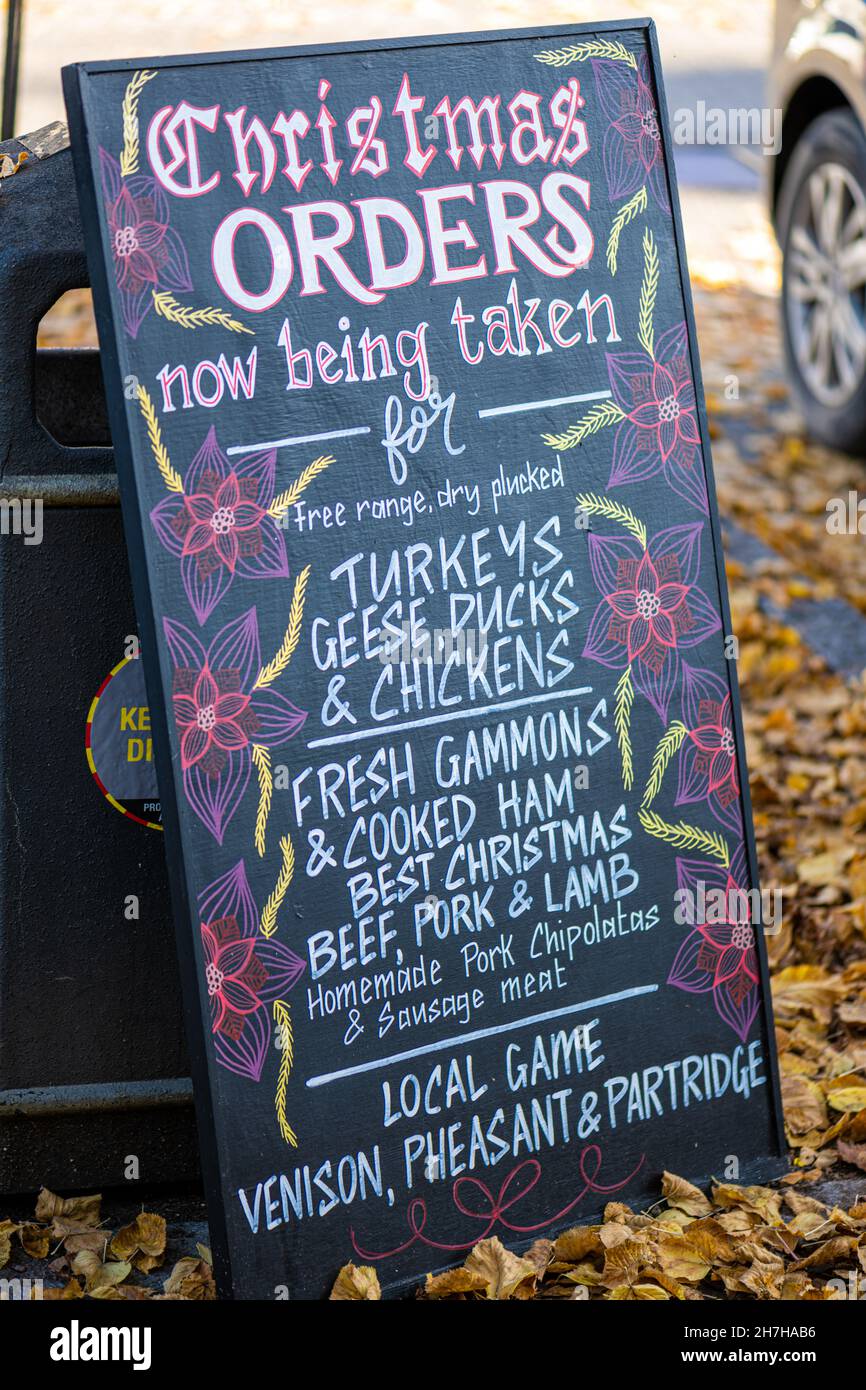 Christmas
ORDERS
now being taken
for
Free range, dry plucked
TURKEYS
GEESE, DUCKS
& CHICKENS
FRESH GAMMONS
& COOKED HAM
BEST CHRISTMAS
BEEF, PORK & LAMB
Homemade Pork Chipolatas
& Sausage meat
LOCAL GAME
VENISON, PHEASANT & PARTRIDGE
KE
DI
PRO
A
alamy
a
Image ID: 2H7HAB6
www.alamy.com